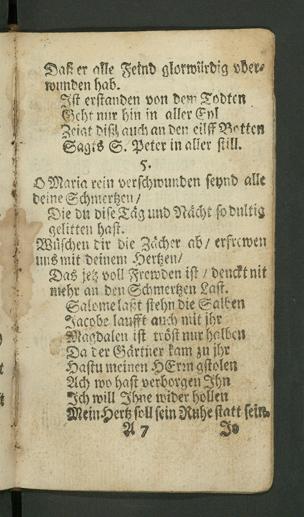 Daß er alle Feind glorwürdig vber-
wunden hab.
Ist erstanden von dem Todten
Geht nur hin in aller Eyl
Zeigt diß auch an den eilff Botten
Sagts S. Peter in aller still.
5.
O Maria rein verschwunden seynd alle
deine Schmertzen/
Die du dise Täg und Nächt so dultig
gelitten hast.
Wüschen dir die Zächer ab/ erfrewen
uns mit deinem Hertzen/
Das jetz voll Frewden ist/ denckt nit
mehr an den Schmertzen Last.
Salome laßt stehn die Salben
Jacobe laufft auch mit jhr
Magdalen ist tröst nur halben
Da der Gärtner kam zu jhr
Hastu meinen HErrn gstolen
Ach wo hast verborgen Jhn
Ich will Jhne wider hollen
Mein Hertz soll sein Ruhe statt sein.
A 7
Jo